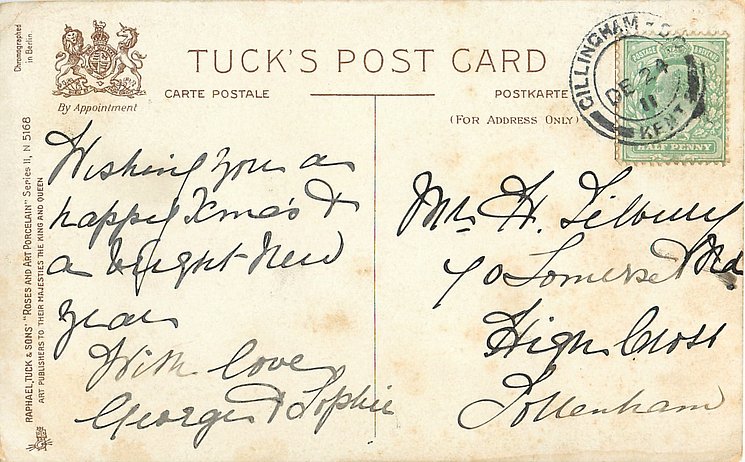 Chromographed
in Berlin.
By Appointment
TUCK'S POST CARD
CARTE POSTALE
POSTKARTE
(FOR ADDRESS ONLY)
GILLINGHAM
DE 24
11
KENT
POSTAGE
HALF PENNY
RAPHAEL TUCK & SONS' "ROSES AND ART PORCELAIN" Series II, N 5168
ART PUBLISHERS TO THEIR MAJESTIES THE KING AND QUEEN
Wishing you a
happy Xmas &
a bright New
year
With love
George & Sophie
Mrs H. Tilbury
70 Somerset Rd
High Cross
Tottenham